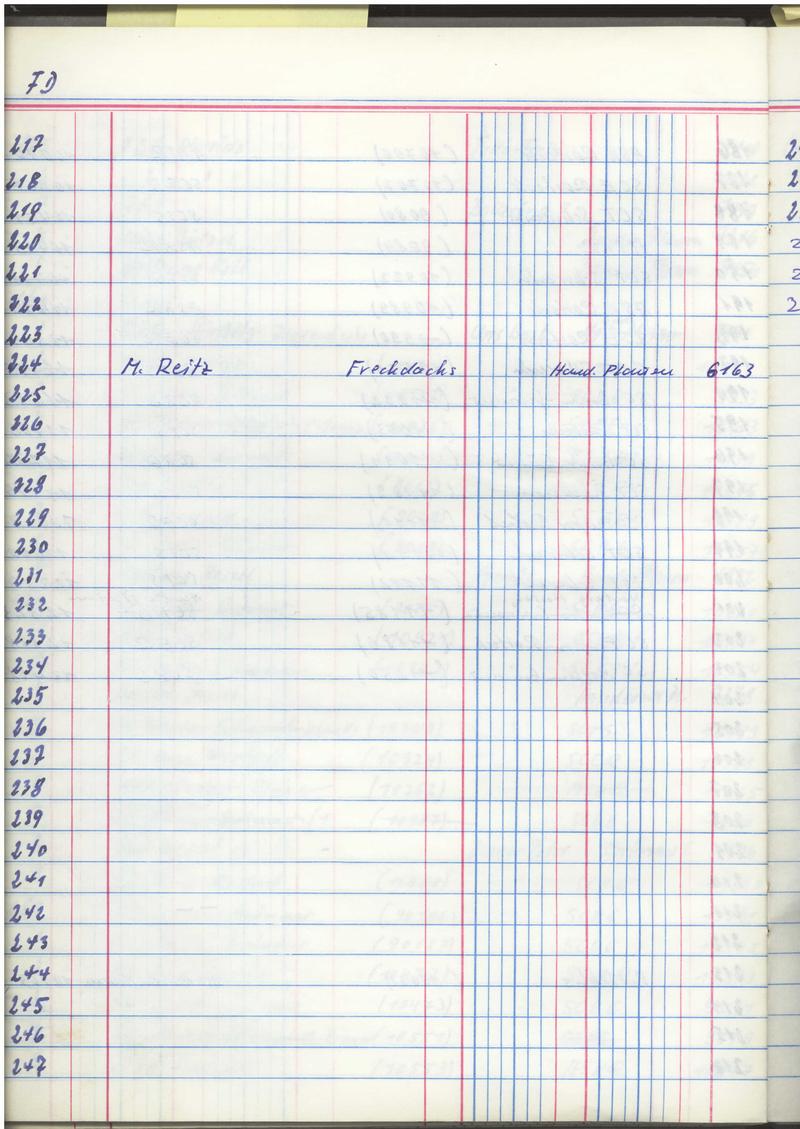 FD
217
218
219
220
221
222
223
224 M. Reitz Frechdachs Hand. Plauen 6163
225
226
227
228
229
230
231
232
233
234
235
236
237
238
239
240
241
242
243
244
245
246
247